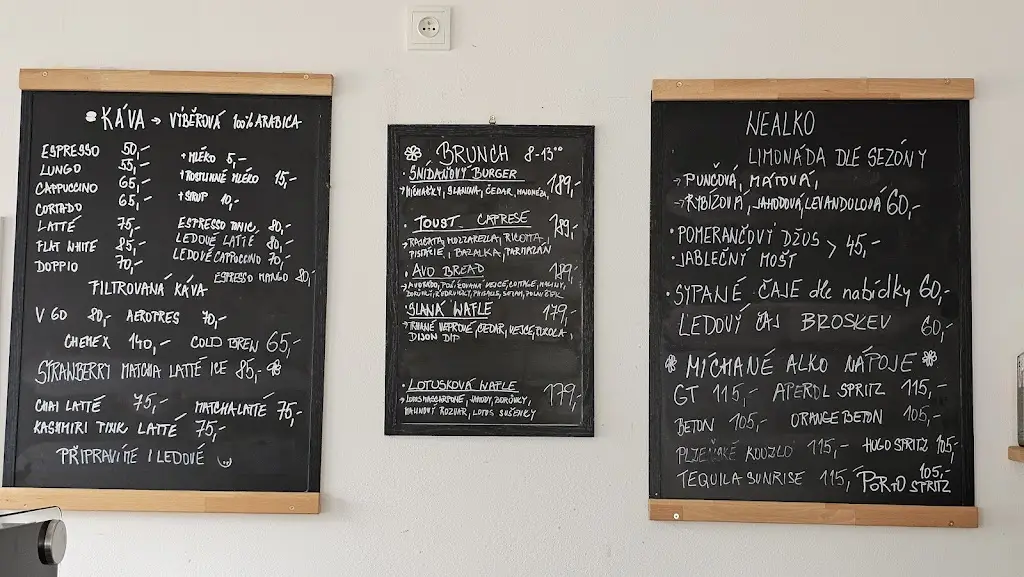 KÁVA → VÝBĚROVÁ 100% ARABICA
ESPRESSO 50,-
LUNGO 55,-
CAPPUCCINO 65,-
CORTADO 65,-
LATTÉ 75,-
FLAT WHITE 85,-
DOPPIO 70,-
+ MLÉKO 5,-
+ ROSTLINNÉ MLÉKO 15,-
+ SIRUP 10,-
ESPRESSO TONIC 80,-
LEDOVÉ LATTÉ 80,-
LEDOVÉ CAPPUCCINO 70,-
ESPRESSO MANGO 80,-
FILTROVANÁ KÁVA
V60 80,- AEROPRES 70,-
CHEMEX 140,- COLD BREW 65,-
STRAWBERRY MATCHA LATTÉ ICE 85,-
CHAI LATTÉ 75,- MATCHA LATTÉ 75,-
KASHMIRI TINK LATTÉ 75,-
PŘIPRAVÍME I LEDOVÉ
BRUNCH 8-13⁰⁰
• SNÍDAŇOVÝ BURGER 189,-
→ MÍCHAČKY, SLANINA, ČEDAR, MAJONÉZA
• TOUST CAPRESE 189,-
→ RAJČATA, MOZZAREZLA, RICOTTA,
PISTÁCIE, BAZALKA, PARMAZÁN
• AVO BREAD 189,-
→ AVOKÁDO, VEJCE, COTTAGE, MALINY,
• SLANÁ WAFLE 179,-
→ TRHANÉ VEPŘOVÉ, ČEDAR, VEJCE, RUKOLA,
DIJON DIP
• LOTUSKOVÁ WAFLE 179,-
→ LOTUS MASCARPONE, JAHODY, BORŮVKY,
MALINOVÝ ROZVAR, LOTUS SUŠENKY
NEALKO
LIMONÁDA DLE SEZÓNY
→ PUNČOVÁ, MÁTOVÁ,
→ RYBÍZOVÁ, JAHODOVÁ, LEVANDULOVÁ 60,-
• POMERANČOVÝ DŽUS > 45,-
• JABLEČNÝ MOŠT
• SYPANÉ ČAJE dle nabídky 60,-
LEDOVÝ ČAJ BROSKEV 60,-
MÍCHANÉ ALKO NÁPOJE
GT 115,- APEROL SPRITZ 115,-
BETON 105,- ORANGE BETON 105,-
PLZEŇSKÉ KOUZLO 115,- HUGO SPRITZ 105,-
TEQUILA SUNRISE 115,- PORTO SPRITZ 105,-